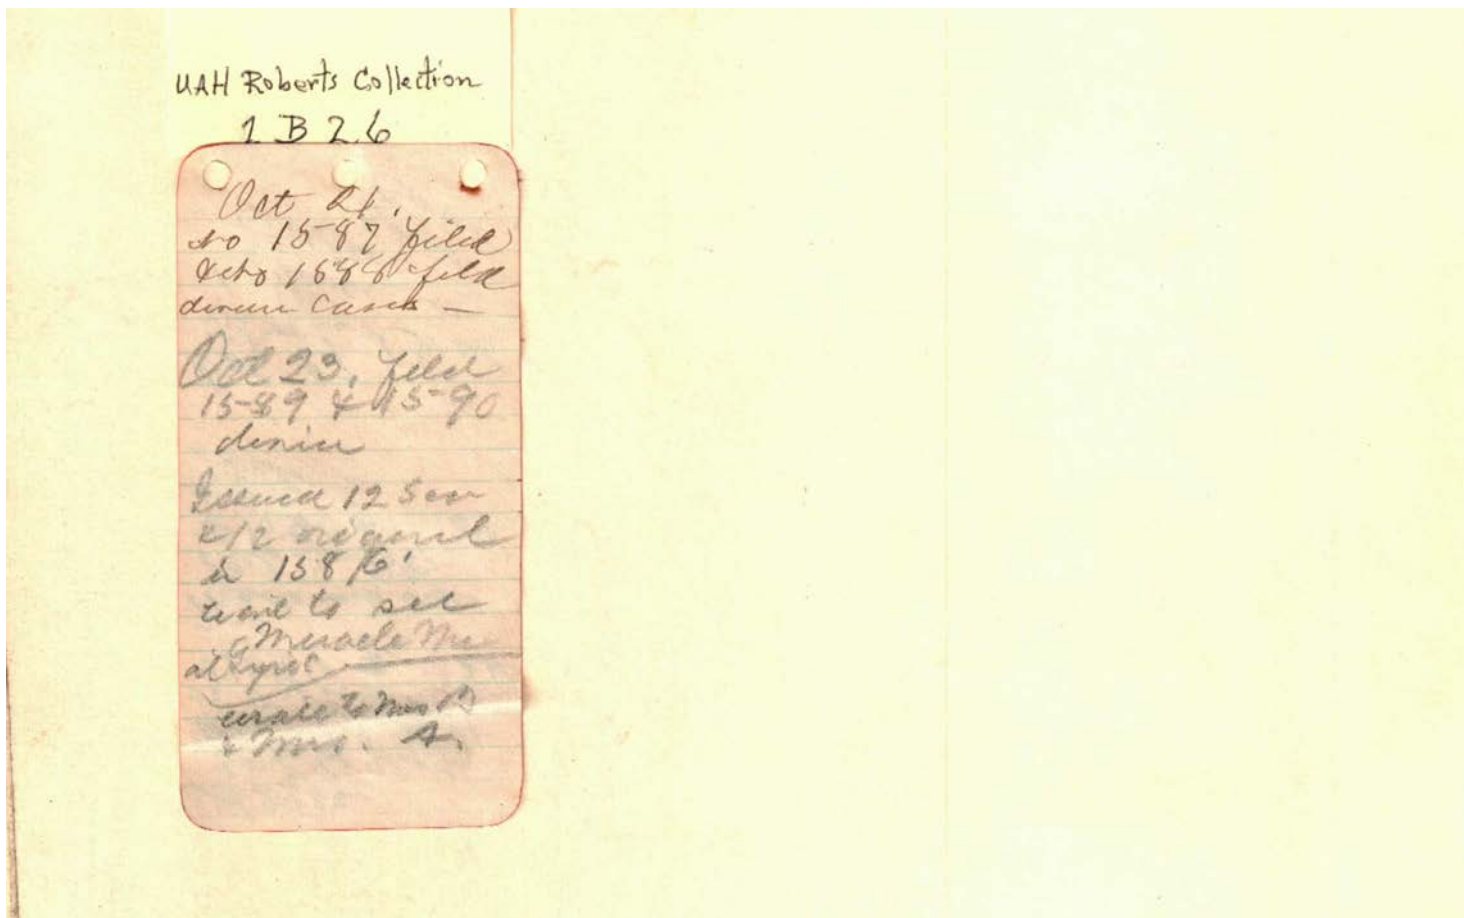 UAH Roberts Collection
1 B 26
Oct 21.
no 1587 filed
& no 1588 filed
divorce cases —
Oct 23, filed
1589 & 1590
divorce
Issued 12 Sum
original
in 1586
went to see
Miracle Man
at Lyric
wrote to Mrs B
& Mrs. A.